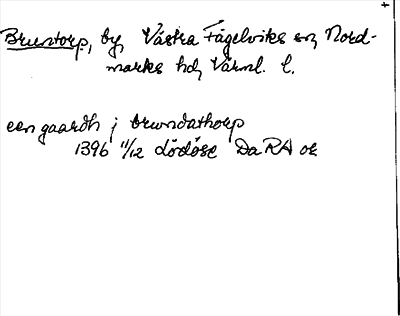 +
Bruntorp, by, Västra Fågelviks sn, Nord-
marks hd, Värml. l.
een gaardh j brundathorp
1396 11/12 lödöse Da RA or